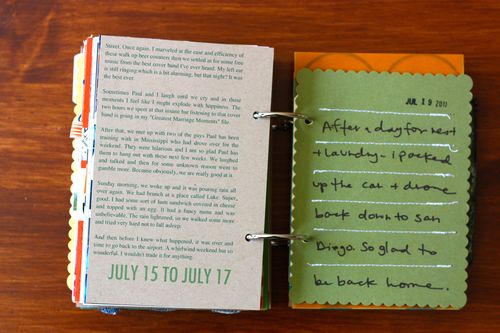 Street. Once again, I marveled at the ease and efficiency of
these walk up beer counters then we settled at for some free
music from the best cover band I've ever heard. My left ear
is still ringing which is a bit alarming, but that night? It was
the best ever.
Sometimes Paul and I laugh until we cry and in those
moments I feel like I might explode with happiness. The
two hours we spent at that insane bar listening to that cover
band is going in my "Greatest Marriage Moments" file.
After that, we met up with two of the guys Paul has been
training with in Mississippi who had drove over for the
weekend. They were hilarious and I am so glad Paul has
them to hang out with these next few weeks. We laughed
and talked and then for some unknown reason went to
gamble more. Because obviously, we are really good at it.
Sunday morning, we woke up and it was pouring rain all
over again. We had brunch at a place called Luke. Super,
good. I had some sort of ham sandwich covered in cheese
and topped with an egg. It had a fancy name and was
unbelievable. The rain lightened, so we walked some more
and tried very hard not to fall asleep.
And then before I knew what happened, it was over and
time to go back to the airport. A whirlwind weekend but so
wonderful. I wouldn't trade it for anything.
JULY 15 TO JULY 17
JUL 19 2011
After a day for rest
+ laundry - i packed
up the car + drove
back down to San
Diego. So glad to
be back home.